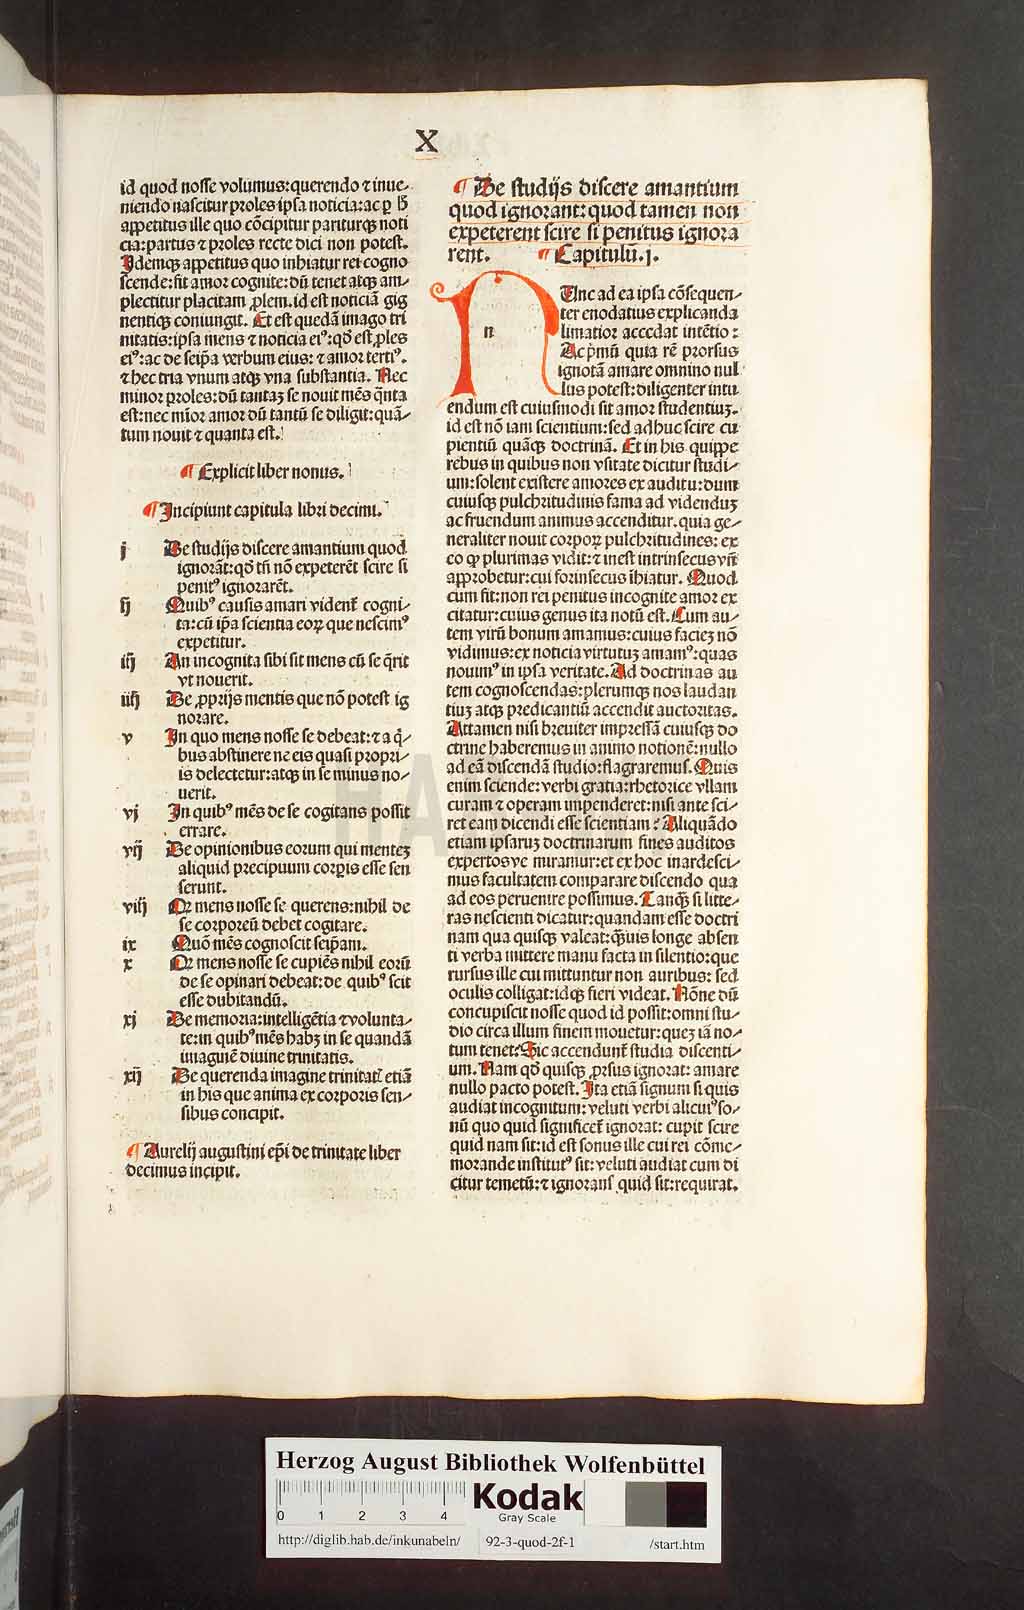 X
id quod nosse volumus: querendo ⁊ inue-
niendo nascitur proles ipsa noticia: ac ꝑ hͦ
appetitus ille quo cōcipitur pariturqꝫ noti
cia: partus ⁊ proles recte dici non potest.
Idemqꝫ appetitus quo inhiatur rei cogno
scende: fit amor cognite: dū tenet atqꝫ am-
plectitur placitam ꝓlem. id est noticiā gig
nentiqꝫ coniungit. Et est quedā imago tri
nitatis: ipsa mens ⁊ noticia eiꝰ: qd̄ est ꝓles
eiꝰ: ac de seip̄a verbum eius: ⁊ amor tertiꝰ.
⁊ hec tria vnum atqꝫ vna substantia. Nec
minor proles: dū tantaꝫ se nouit mēs q̄nta
est: nec mīor amor dū tantū se diligit: quā-
tum nouit ⁊ quanta est.
¶ Explicit liber nonus.
¶ Incipiunt capitula libri decimi.
j De studijs discere amantium quod
ignorāt: qd̄ tn̄ nō expeterēt scire si
penitꝰ ignorarēt.
ij Quibꝰ causis amari vident̄ cogni-
ta: cū ip̄a scientia eoꝝ que nescimꝰ
expetitur.
iij An incognita sibi sit mens cū se q̄rit
vt nouerit.
iiij De ꝓprijs mentis que nō potest ig
norare.
v In quo mens nosse se debeat: ⁊ a q̄-
bus abstinere ne eis quasi propri-
is delectetur: atqꝫ in se minus no-
uerit.
vj In quibꝰ mēs de se cogitans possit
errare.
vij De opinionibus eorum qui menteꝫ
aliquid precipuum corꝑis esse sen
serunt.
viij Qꝙ mens nosse se querens: nihil de
se corporeū debet cogitare.
ix Quō mēs cognoscit seip̄am.
x Qꝙ mens nosse se cupiēs nihil eorū
de se opinari debeat: de quibꝰ scit
esse dubitandū.
xj De memoria: intelligētia ⁊ volunta-
te: in quibꝰ mēs habꝫ in se quandā
imaginē diuine trinitatis.
xij De querenda imagine trinitat̄ etiā
in his que anima ex corporis sen-
sibus concipit.
¶ Aurelij augustini ep̄i de trinitate liber
decimus incipit.
¶ De studijs discere amantium
quod ignorant: quod tamen non
expeterent scire si penitus ignora
rent. ¶ Capitulū. j.
n
Unc ad ea ipsa cōsequen-
ter enodatius explicanda
limatior accedat intētio:
Ac p̄mū quia rē prorsus
ignotā amare omnino nul
lus potest: diligenter intu
endum est cuiusmodi sit amor studentiuꝫ.
id est nō iam scientium: sed adhuc scire cu
pientiū quāqꝫ doctrinā. Et in his quippe
rebus in quibus non vsitate dicitur studi-
um: solent existere amores ex auditu: dum
cuiusqꝫ pulchritudinis fama ad videnduꝫ
ac fruendum animus accenditur. quia ge-
neraliter nouit corpoꝝ pulchritudines: ex
eo ꝙ plurimas vidit: ⁊ inest intrinsecus vn̄
approbetur: cui forinsecus ihiatur. Quod
cum fit: non rei penitus incognite amor ex
citatur: cuius genus ita notū est. Cum au-
tem virū bonum amamus: cuius facieꝫ nō
vidimus: ex noticia virtutuꝫ amamꝰ: quas
nouimꝰ in ipsa veritate. Ad doctrinas au
tem cognoscendas: plerumqꝫ nos laudan
tiuꝫ atqꝫ predicantiū accendit auctoritas.
Attamen nisi breuiter impressā cuiusqꝫ do
ctrine haberemus in animo notionē: nullo
ad eā discendā studio flagraremus. Quis
enim sciende: verbi gratia: rhetorice vllam
curam ⁊ operam impenderet: nisi ante sci-
ret eam dicendi esse scientiam? Aliquādo
etiam ipsaruꝫ doctrinarum fines auditos
expertosve miramur: et ex hoc inardesci-
mus facultatem comparare discendo qua
ad eos peruenire possimus. Tanqꝫ si litte-
ras nescienti dicatur: quandam esse doctri
nam qua quisqꝫ valeat: q̄uis longe absen
ti verba mittere manu facta in silentio: que
rursus ille cui mittuntur non auribus: sed
oculis colligat: idqꝫ fieri videat. Nōne dū
concupiscit nosse quod id possit: omni stu-
dio circa illum finem mouetur: queꝫ iā no-
tum tenet? Sic accendunt̄ studia discenti-
um. Nam qd̄ quisqꝫ ꝓrsus ignorat: amare
nullo pacto potest. Ita etiā signum si quis
audiat incognitum: veluti verbi alicuiꝰ so-
nū quo quid significet̄ ignorat: cupit scire
quid nam sit: id est sonus ille cui rei cōme-
morande institutꝰ sit: veluti audiat cum di
citur temetū: ⁊ ignorans quid sit: requirat.
Herzog August Bibliothek Wolfenbüttel
0 1 2 3 4
Kodak
Gray Scale
http://diglib.hab.de/inkunabeln/ 92-3-quod-2f-1 /start.htm